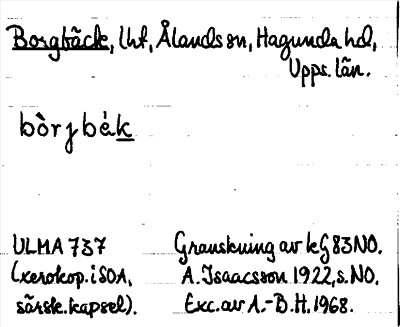 Borgbäck, lht, Ålands sn, Hagunda hd,
Upps. län.
bòrjbèk
ULMA 737 Granskning av kG 83NO.
(xerokop. i SOA, A. Isaacsson 1922, s. NO.
särsk. kapsel). Exc. av A.-B.H. 1968.